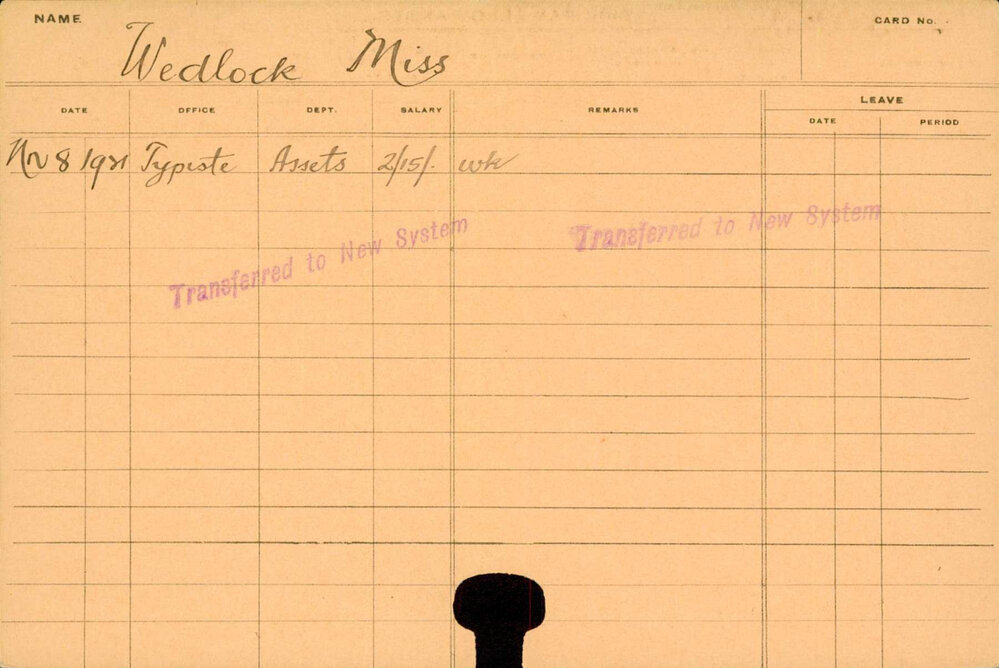 NAME CARD No.
Wedlock Miss
DATE OFFICE DEPT. SALARY REMARKS LEAVE
DATE PERIOD
Nov 8 1921 Typiste Assets 2/15/. wk
Transferred to New System Transferred to New System